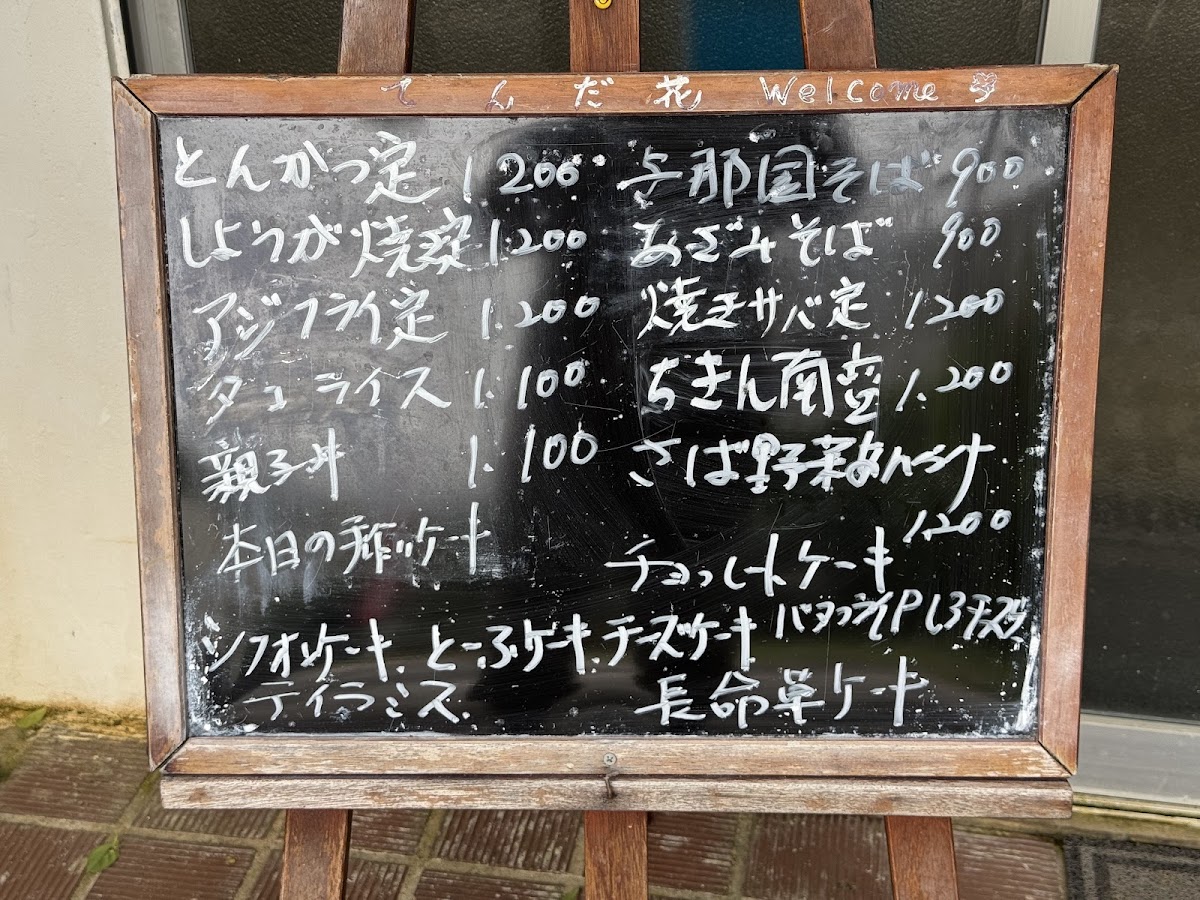 てんだ花 Welcome
とんかつ定 1.200
しょうが焼定 1.200
アジフライ定 1.200
タコライス 1.100
親子丼 1.100
本日の手作りケーキ
与那国そば 900
あざみそば 900
焼きサバ定 1.200
ちきん南蛮 1.200
さば野菜
1.200
ケーキ
シフォンケーキ.とーふケーキ.チーズケーキ
ティラミス.
長命草ケーキ